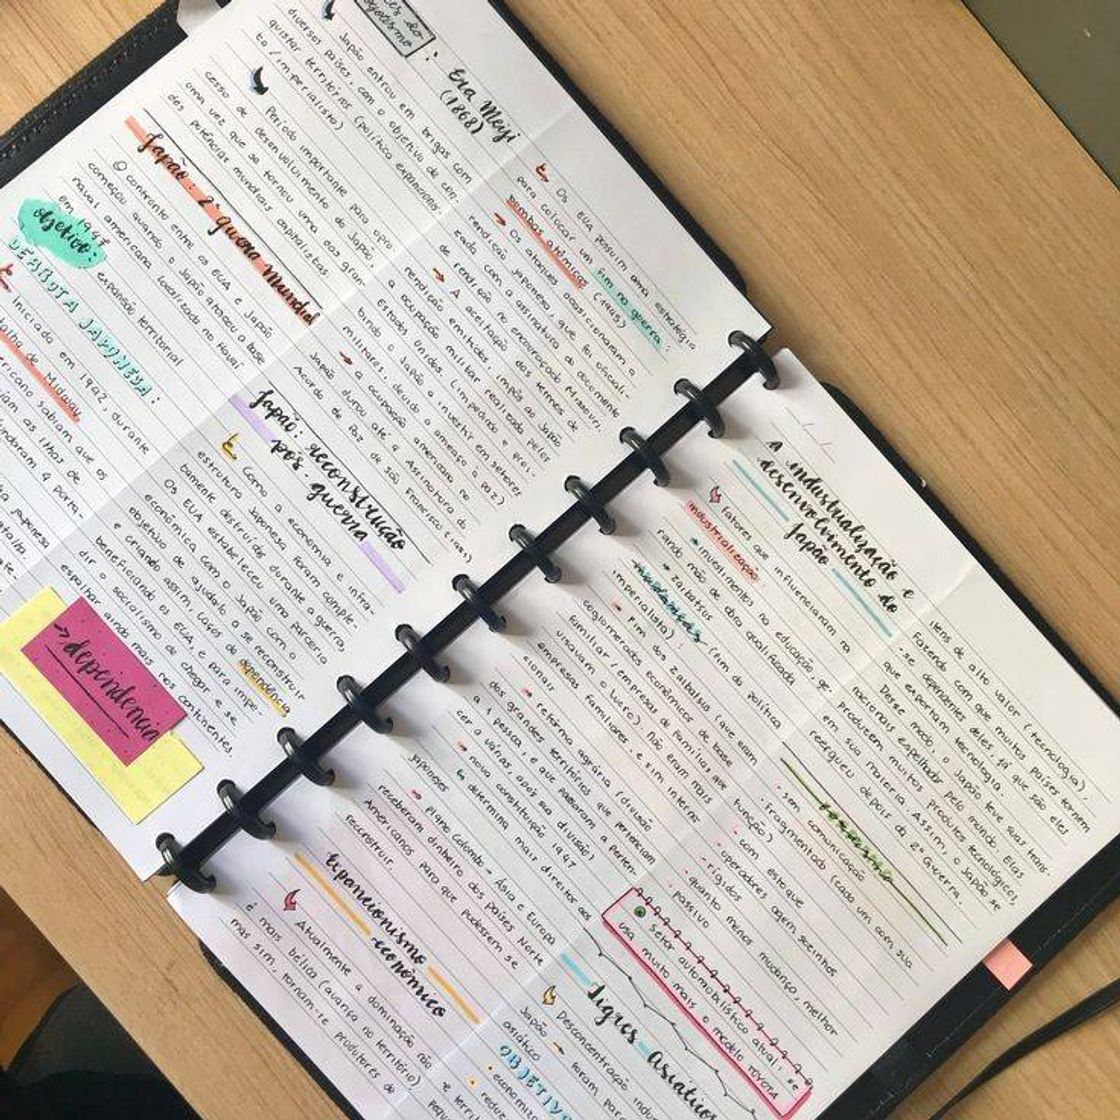 Era Meiji
(1868)
Japão entrou em brigas com
diversos países, com o objetivo de con-
quistar territórios (política expansionis-
ta / imperialista)
Período importante para o pro
cesso de desenvolvimento do Japão,
uma vez que se tornou uma das gran
des potências mundiais capitalistas
Japão: 2ª guerra mundial
O confronto entre os EUA e Japão
começou quando o Japão atacou a base
naval americana localizada no Havaí
em 1941
objetivo: expansão territorial
DERROTA JAPONESA:
Iniciado em 1942, durante
Batalha de Midway
sabiam que os
as ilhas de
afundaram 4 porta-
japonesa
batalha
Os EUA possuíam uma estratégia
para colocar um fim na guerra:
bombas atômicas (1945)
Os ataques ocasionaram a
rendição japonesa, que foi oficiali-
zada com a assinatura do documento
de rendição no encouraçado Missouri.
A aceitação dos termos de
rendição emitidos impôs ao Japão
a ocupação militar realizada pelos
Estados Unidos (impedindo e proi-
bindo o Japão a investir em setores
militares, devido a ameaça à paz)
a ocupação americana no
Japão durou até a Assinatura do
Acordo de Paz de São Francisco (1951)
Japão: reconstrução
pós guerra
Como a economia e infra-
estrutura japonesa foram comple-
tamente destruídas durante a guerra,
Os EUA estabeleceu uma parceria
econômica com o Japão com o
objetivo de ajudá-lo a se reconstruir
e criando assim, laços de dependência
beneficiando os EUA, e para impe-
dir o socialismo de chegar e se
espalhar ainda mais nos continentes.
→ dependencia
A industrialização e
desenvolvimento do
Japão
fatores que influenciaram na
industrialização
investimentos na educação ge-
rando mão de obra qualificada
zaibatsus
mudanças (fim da política
imperialista):
fim dos zaibatsus (que eram
conglomerados econômicos de base
familiar / empresas de famílias que
visavam o lucro) não eram mais
empresas familiares, e sim interna
cionais
reforma agrária (divisão
dos grandes territórios que pertenciam
a 1 pessoa, e que passaram a perten-
cer a várias, após sua divisão)
nova constituição 1947
determina mais direitos aos
japoneses
plano Colombo - Ásia e Europa
receberam dinheiro dos países Norte
Americanos para que pudessem se
reconstruir
Expancionismo
econômico
Atualmente a dominação não
é mais bélica (avança no território)
mas sim, tornam-se produtores de
itens de alto valor (tecnologia),
Fazendo com que muitos países tornem
-se dependentes deles, já que são eles
que exportam tecnologia.
Desse modo, o Japão teve suas trans-
nacionais espelhadas pelo mundo. Elas
produzem muitos produtos tecnológicos,
em sua maioria. Assim, o Japão se
reergueu depois da 2ª Guerra.
sem comunicação
fragmentado (cada um com sua
função)
com estoque
operadores agem sozinhos
rígidos
quanto menos mudança, melhor
passivo
Setor automobilístico atual: se
usa muito mais o modelo TOYOTA
Tigres Asiáticos
Desconcentração indus
Japão
asiático foram par
OBJETIVO